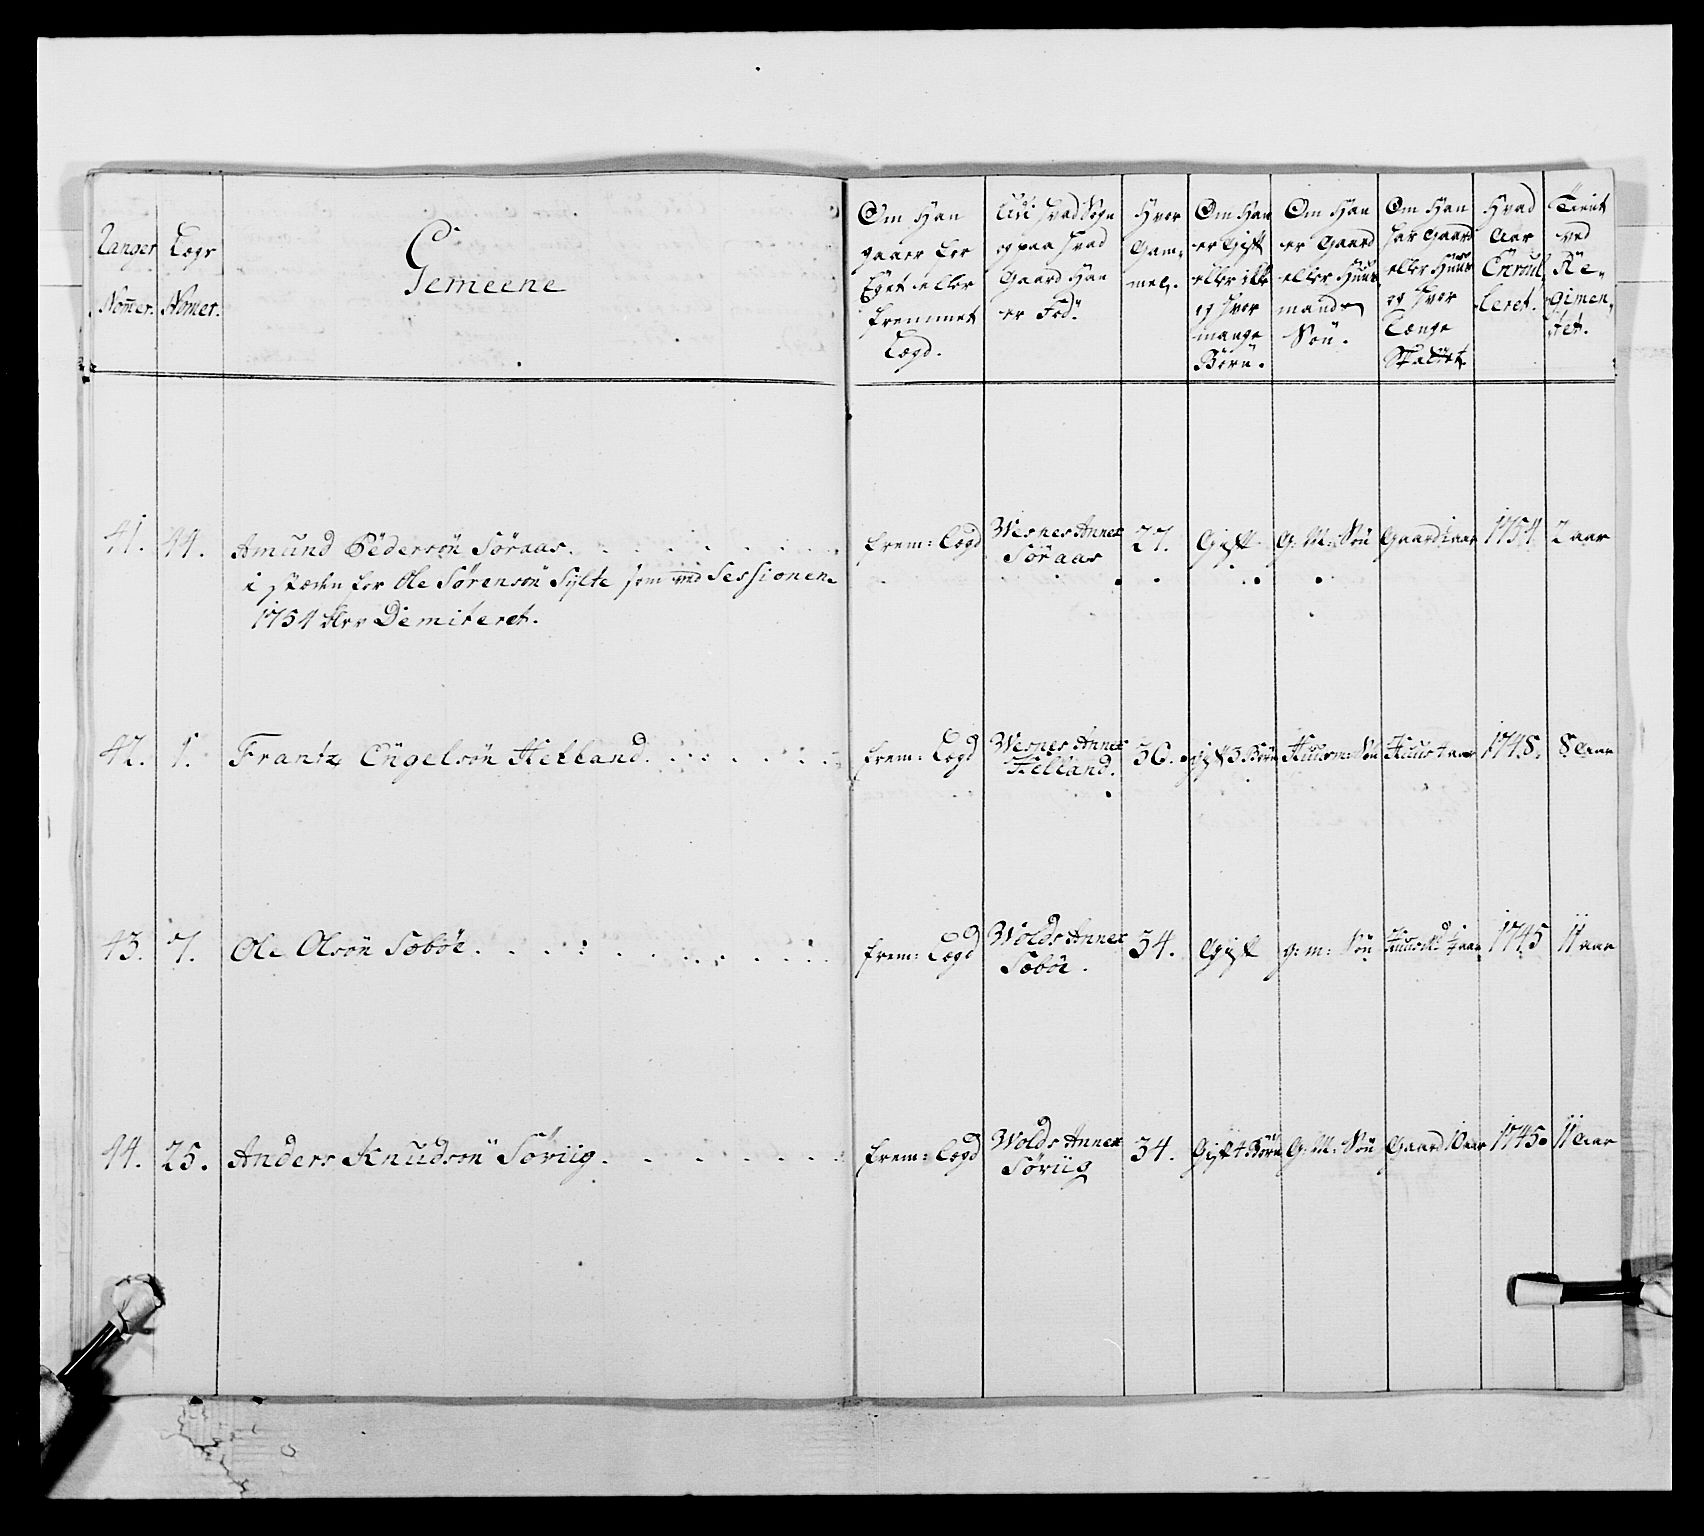 Ranger Nomer.
Lægs Nomer.
Gemeene
Om Han gaaer for Eget eller fremmet Lægd.
Udi hvad Sogn og paa hvad Gaard Han er Fød.
Hvor Gammel.
Om Han er Gift eller ikke og hvor mange Børn.
Om Han er Gaard eller Huusmands Søn.
Om Han har Gaard eller Huus og hvor Længe
Hvad Aar Enroulleret.
Tient ved Regimentet.
41. 44. Amund Pedersøn Søraas. frem: Lægd Wesnes Annex Søraas 27. Gift G: M: Søn Gaard 2 aar 1754 2 aar
i stæden for Ole Sørensøn Sylte som ved Sessionen
1754 blev Demiteret.
42. 1. Frantz Engelsøn Helland. frem: Lægd Wesnes Annex Helland. 36. gift 3 Børn Huusm: Søn Huus 4 aar 1748. 8 aar
43. 7. Ole Olsøn Sæbøe. frem: Lægd Wolds Annex Sæbøe. 34. Gift g: m: Søn 1745 11 aar
44. 25. Anders Knudsøn Søriig. frem: Lægd Wolds Annex Søriig 34. Gift 4 Børn G: M: Søn Gaard 10 aar 1745. 11 aar